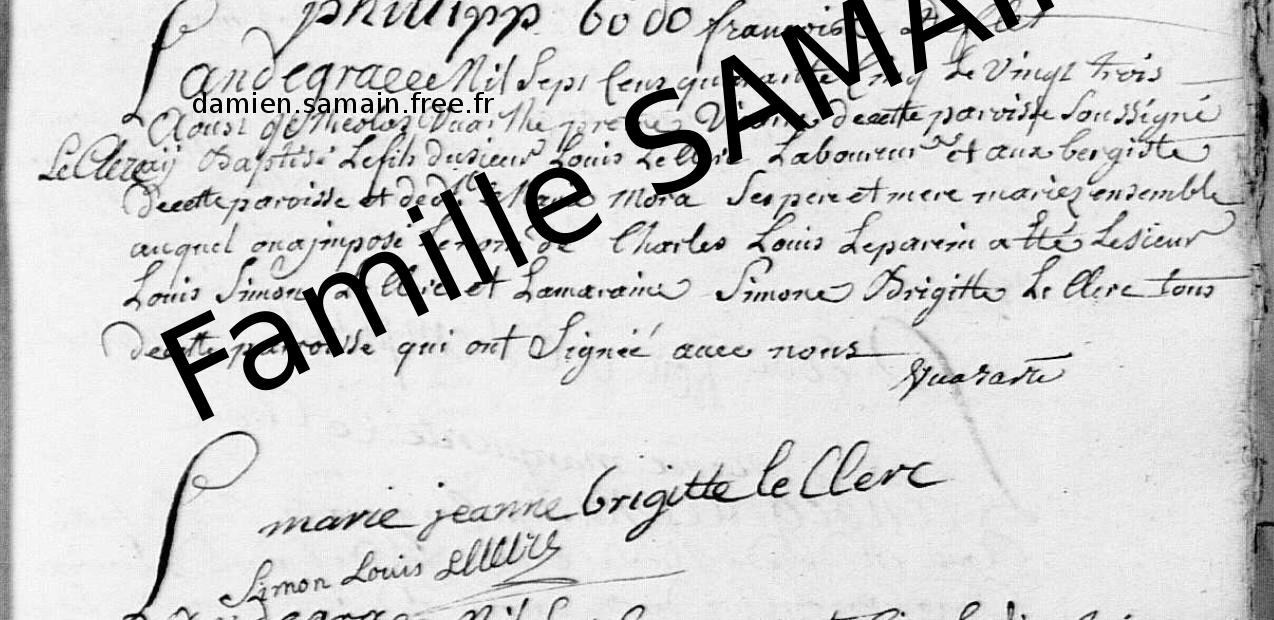 philipp bodo francoise
Landegrace Mil Sept Cens quarante Cinq le Vingt trois
damien.samain.free.fr
Aoust je Nicolas pretre Vicaire decette paroisse Soussigné
Le Clerc
ay Baptisé Lefils dusieur Louis Le Clerc Laboureur et aubergiste
decette paroisse et de Marie Mora Ses pere et mere mariez ensemble
auquel ona jmposé Lenom de Charles Louis Leparein a Eté Lesieur
Louis Simon Le Clerc et Lamaraine Simone Brigitte Le Clerc tous
decette paroisse qui ont Signéé avec nous
Famille SAMAIN
marie jeanne brigitte le Clerc
Simon Louis Leclerc